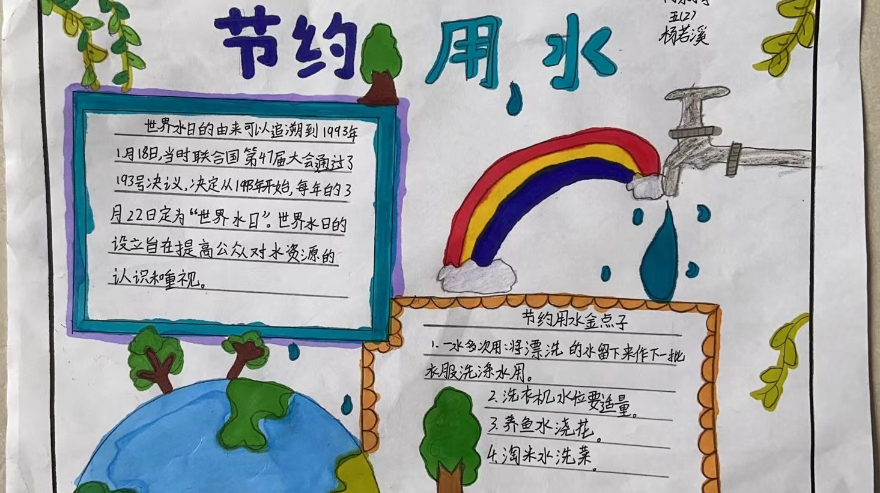 节约用水
五(2)
杨若溪
世界水日的由来可以追溯到1993年
1月18日,当时联合国第47届大会通过了
193号决议,决定从1993年开始,每年的3
月22日定为“世界水日”。世界水日的
设立旨在提高公众对水资源的
认识和重视。
节约用水金点子
1.一水多次用:将漂洗的水留下来作下一批
衣服洗涤水用。
2.洗衣机水位要适量。
3.养鱼水浇花。
4.淘米水洗菜。